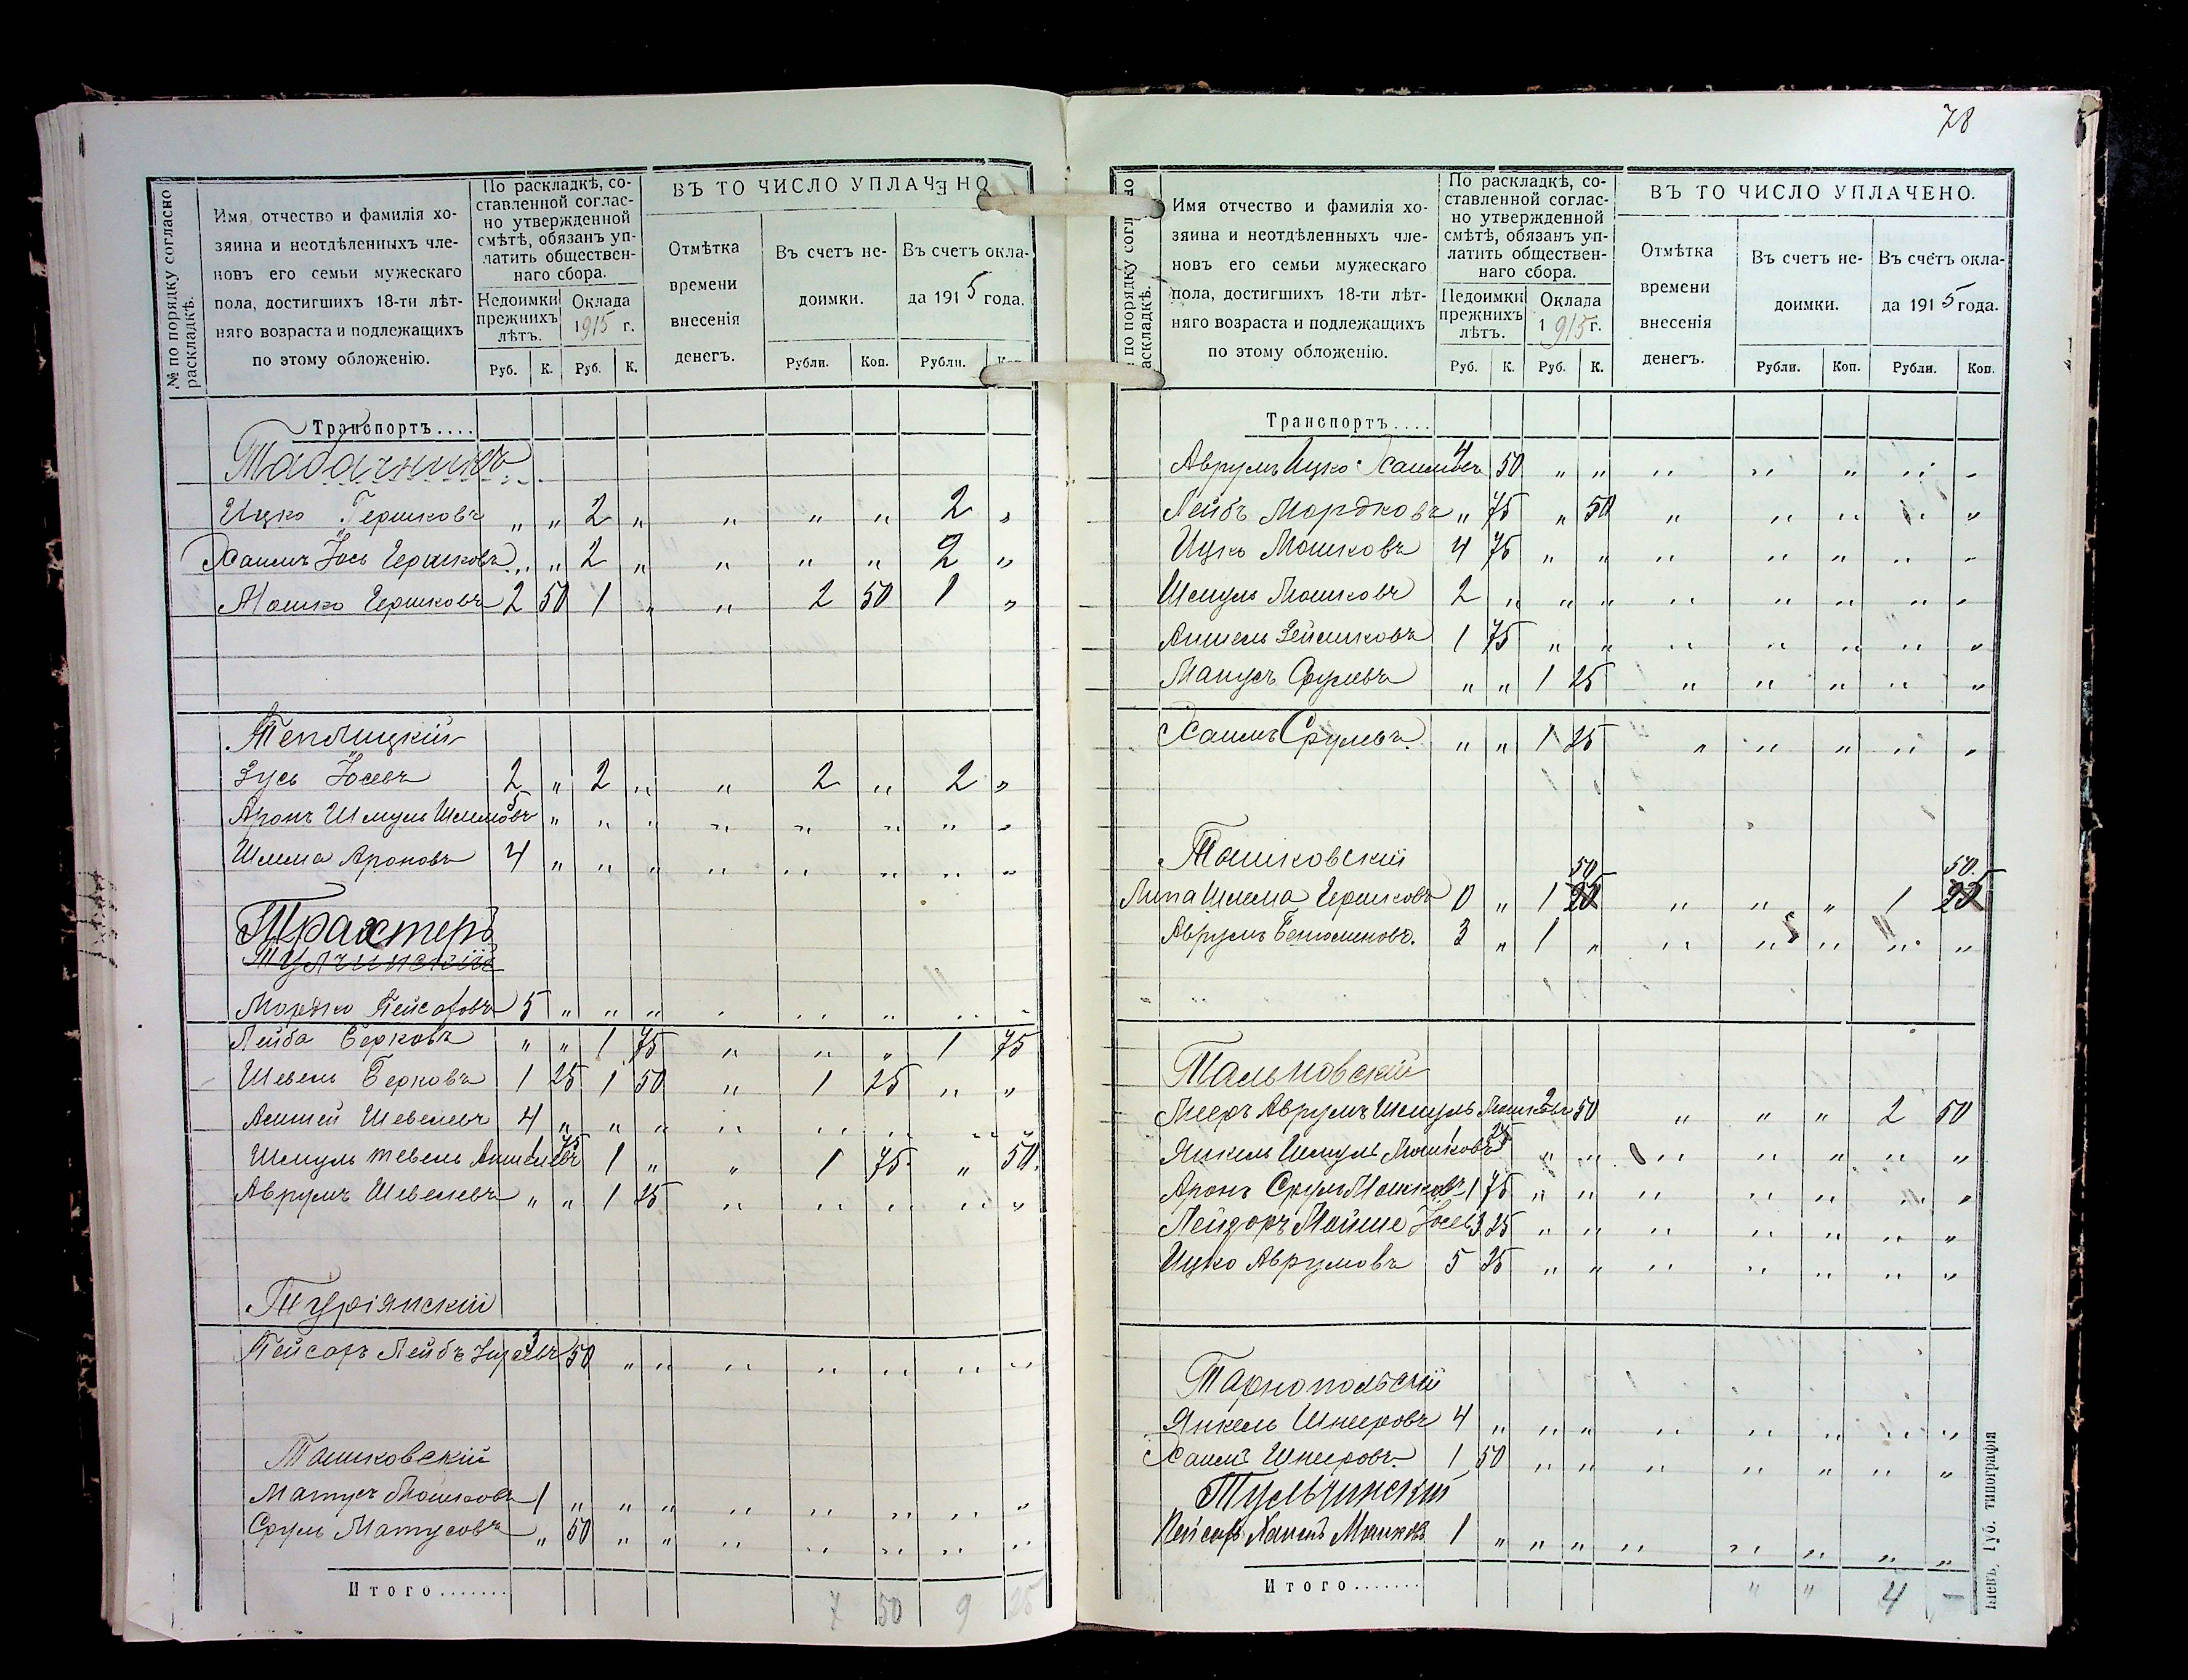 № по порядку согласно раскладкѣ.
Имя, отчество и фамилія хозяина и неотдѣленныхъ членовъ его семьи мужескаго пола, достигшихъ 18-ти лѣтняго возраста и подлежащихъ по этому обложенію.
По раскладкѣ, составленной согласно утвержденной смѣтѣ, обязанъ уплатить общественнаго сбора.
Недоимки прежнихъ лѣтъ.
Оклада 1915 г.
ВЪ ТО ЧИСЛО УПЛАЧЕНО
Отмѣтка времени внесенія денегъ.
Въ счетъ недоимки.
Въ счетъ оклада 1915 года.
Руб. К. Руб. К. Рубли. Коп. Рубли. Коп.
Транспортъ....
Табачникъ
Ицко Гершковъ „ „ 2 „ „ „ „ 2 „
Хаимъ Іось Гершковъ „ „ 2 „ „ „ „ 2 „
Мошко Гершковъ 2 50 1 „ „ 2 50 1 „
Теплицкій
Зусь Іосевъ 2 „ 2 „ „ 2 „ 2 „
Аронъ Шмуль Шлемовъ 5 „ „ „ „ „ „ „ „
Шлема Ароновъ 4 „ „ „ „ „ „ „ „
Трахтеръ
Тульчинскій
Мордко Пейсаховъ 5 „ „ „ „ „ „ „ „
Лейба Берковъ „ „ 1 75 „ „ „ 1 75
Шевель Берковъ 1 25 1 50 „ 1 25 „ „
Аншель Шевелевъ 4 „ „ „ „ „ „ „ „
Шмуль Тевель Аншелевъ 1 75 1 „ „ 1 75 „ 50
Аврумъ Шевелевъ „ „ 1 25 „ „ „ „ „
Туріянскій
Пейсахъ Лейбъ 3 50 „ „ „ „ „ „ „
Ташковскій
Матусъ Мошковъ 1 „ „ „ „ „ „ „ „
Сруль Матусовъ „ 50 „ „ „ „ „ „ „
Итого....... 7 50 9 25
78
№ по порядку согласно раскладкѣ.
Имя отчество и фамилія хозяина и неотдѣленныхъ членовъ его семьи мужескаго пола, достигшихъ 18-ти лѣтняго возраста и подлежащихъ по этому обложенію.
По раскладкѣ, составленной согласно утвержденной смѣтѣ, обязанъ уплатить общественнаго сбора.
Недоимки прежнихъ лѣтъ.
Оклада 1915 г.
ВЪ ТО ЧИСЛО УПЛАЧЕНО.
Отмѣтка времени внесенія денегъ.
Въ счетъ недоимки.
Въ счетъ оклада 1915 года.
Руб. К. Руб. К. Рубли. Коп. Рубли. Коп.
Транспортъ....
Аврумъ Ицко Хаимовъ 4 50 „ „ „ „ „ „ „
Лейбъ Мордковъ „ 75 „ 50 „ „ „ „ „
Ицко Мошковъ 4 75 „ „ „ „ „ „ „
Шмуль Мошковъ 2 „ „ „ „ „ „ „ „
Аншель Зейликовъ 1 75 „ „ „ „ „ „ „
Матусъ Срулевъ „ „ 1 25 „ „ „ „ „
Хаимъ Срулевъ „ „ 1 25 „ „ „ „ „
Ташковскій
Липа Шлема Гершковъ 0 „ 1 50 „ „ „ 1 50
Аврумъ Беньоминовъ. 3 „ 1 „ „ „ „ „ „
Тальновскій
Мееръ Аврумъ Шмуль Мошковъ 2 50 „ „ „ 2 50
Янкель Шмуль Мошковъ 1 25 „ „ „ „ „ „ „
Аронъ Сруль Мошковъ 1 75 „ „ „ „ „ „ „
Лейзоръ Мойше Іосев 3 25 „ „ „ „ „ „ „
Ицко Аврумовъ 5 25 „ „ „ „ „ „ „
Тарнопольскій
Янкель Шнееровъ 4 „ „ „ „ „ „ „ „
Хаимъ Шнееровъ 1 50 „ „ „ „ „ „ „
Тульчинскій
Пейсахъ Хаимъ Мошковъ 1 „ „ „ „ „ „ „ „
Итого....... „ „ 4
Кіевъ, Губ. типографія